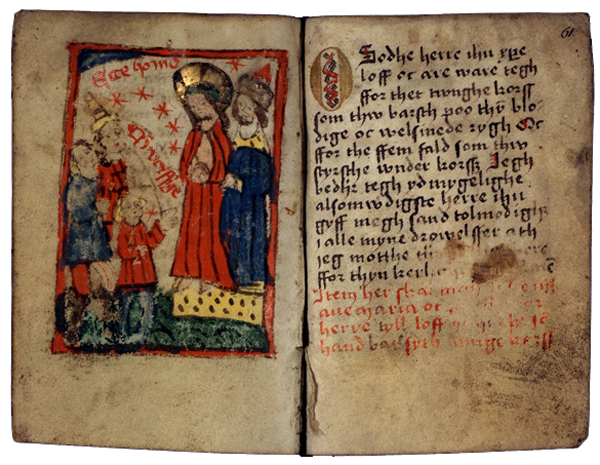 Ecce homo
61
O Sodhe herre ihu xpe
loff oc are ware tegh
ffor thet twnghe korss
som thw barsth poo thÿ blo-
dige oc welsinede rygh Oc
ffor the ffem fald som thw
styrthe wnder korss Jegh
bedhr tegh ydmygelighe
alsomwdigste herre ihu
gyff megh sand tolmodighz
j alle myne drowelsser ath
jeg motthe
ffor thyn kerl
Item her skal
aue maria oc
herre wyll loff
hand bar syth twnge korss